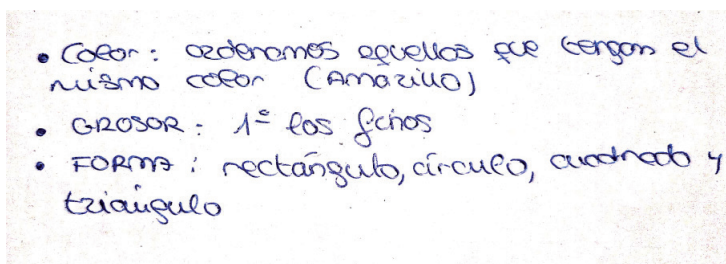 • Color: ordenamos aquellos que tengan el
mismo color (Amarillo)
• GROSOR: 1º los finos
• FORMA: rectángulo, círculo, cuadrado y
triángulo